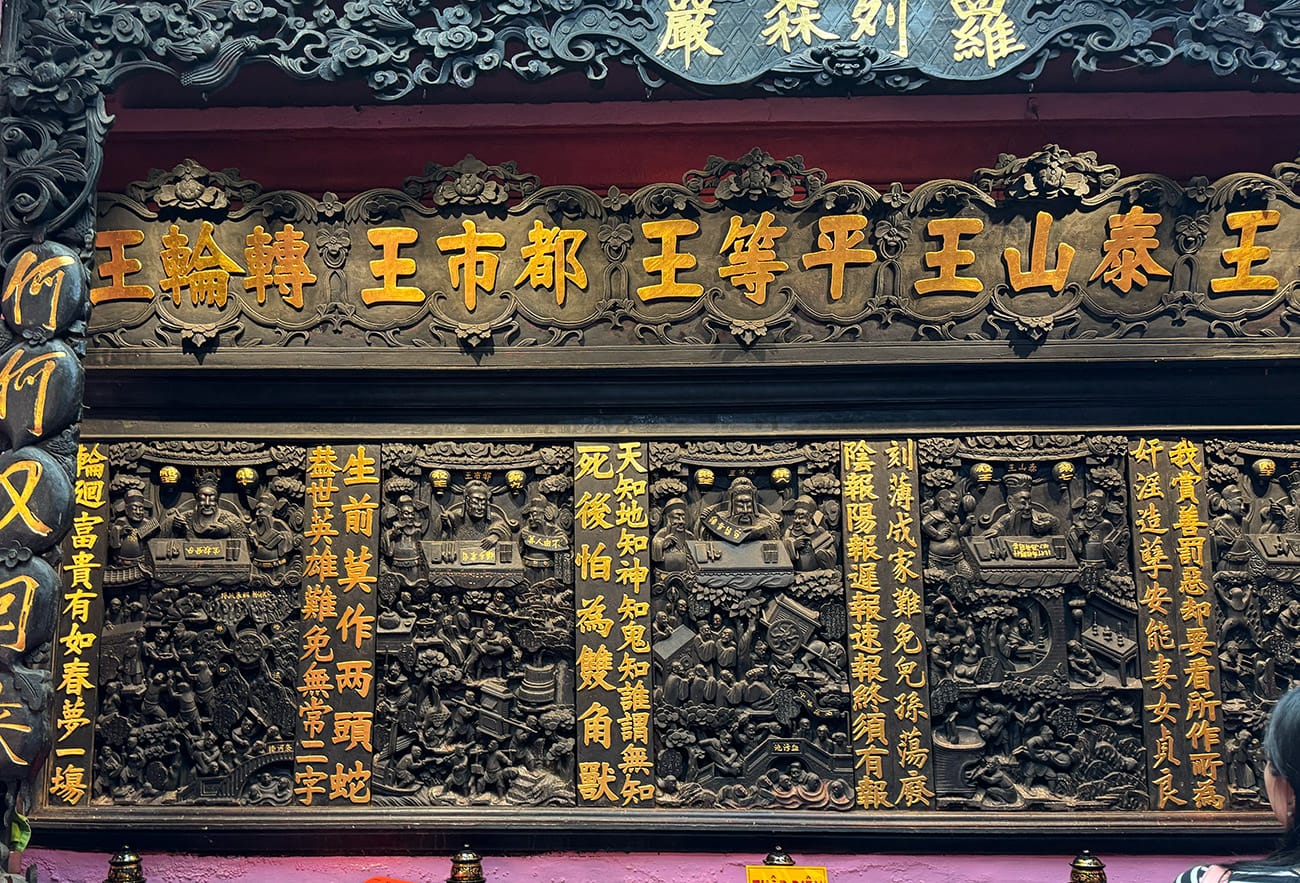 羅列森嚴
王
泰山王
平等王
都市王
轉輪王
我賞善罰惡却要看所作所為
奸淫造孽安能妻女貞良
刻薄成家難免兒孫蕩廢
陰報陽報遲報速報終須有報
天知地知神知鬼知誰謂無知
死後怕為雙角獸
生前莫作兩頭蛇
蓋世英雄難免無常二字
輪迴富貴有如春夢一塲
何何又回來
泰山王
血污池